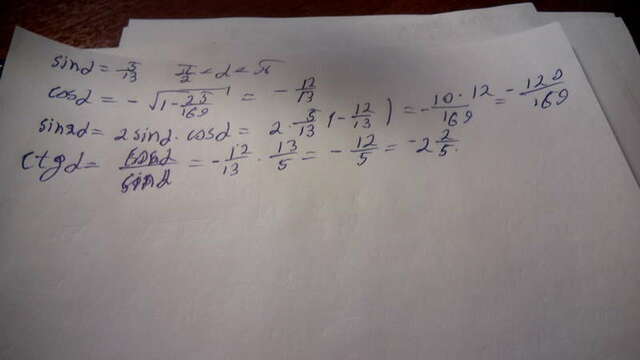 sin α = 5/13   π/2 < α < π
cos α = - √(1 - 25/169) = - 12/13
sin 2α = 2 sin α · cos α = 2 · 5/13 (- 12/13) = - 10 · 12/169 = - 120/169
ctg α = cos α/sin α = - 12/13 · 13/5 = - 12/5 = - 2 2/5.